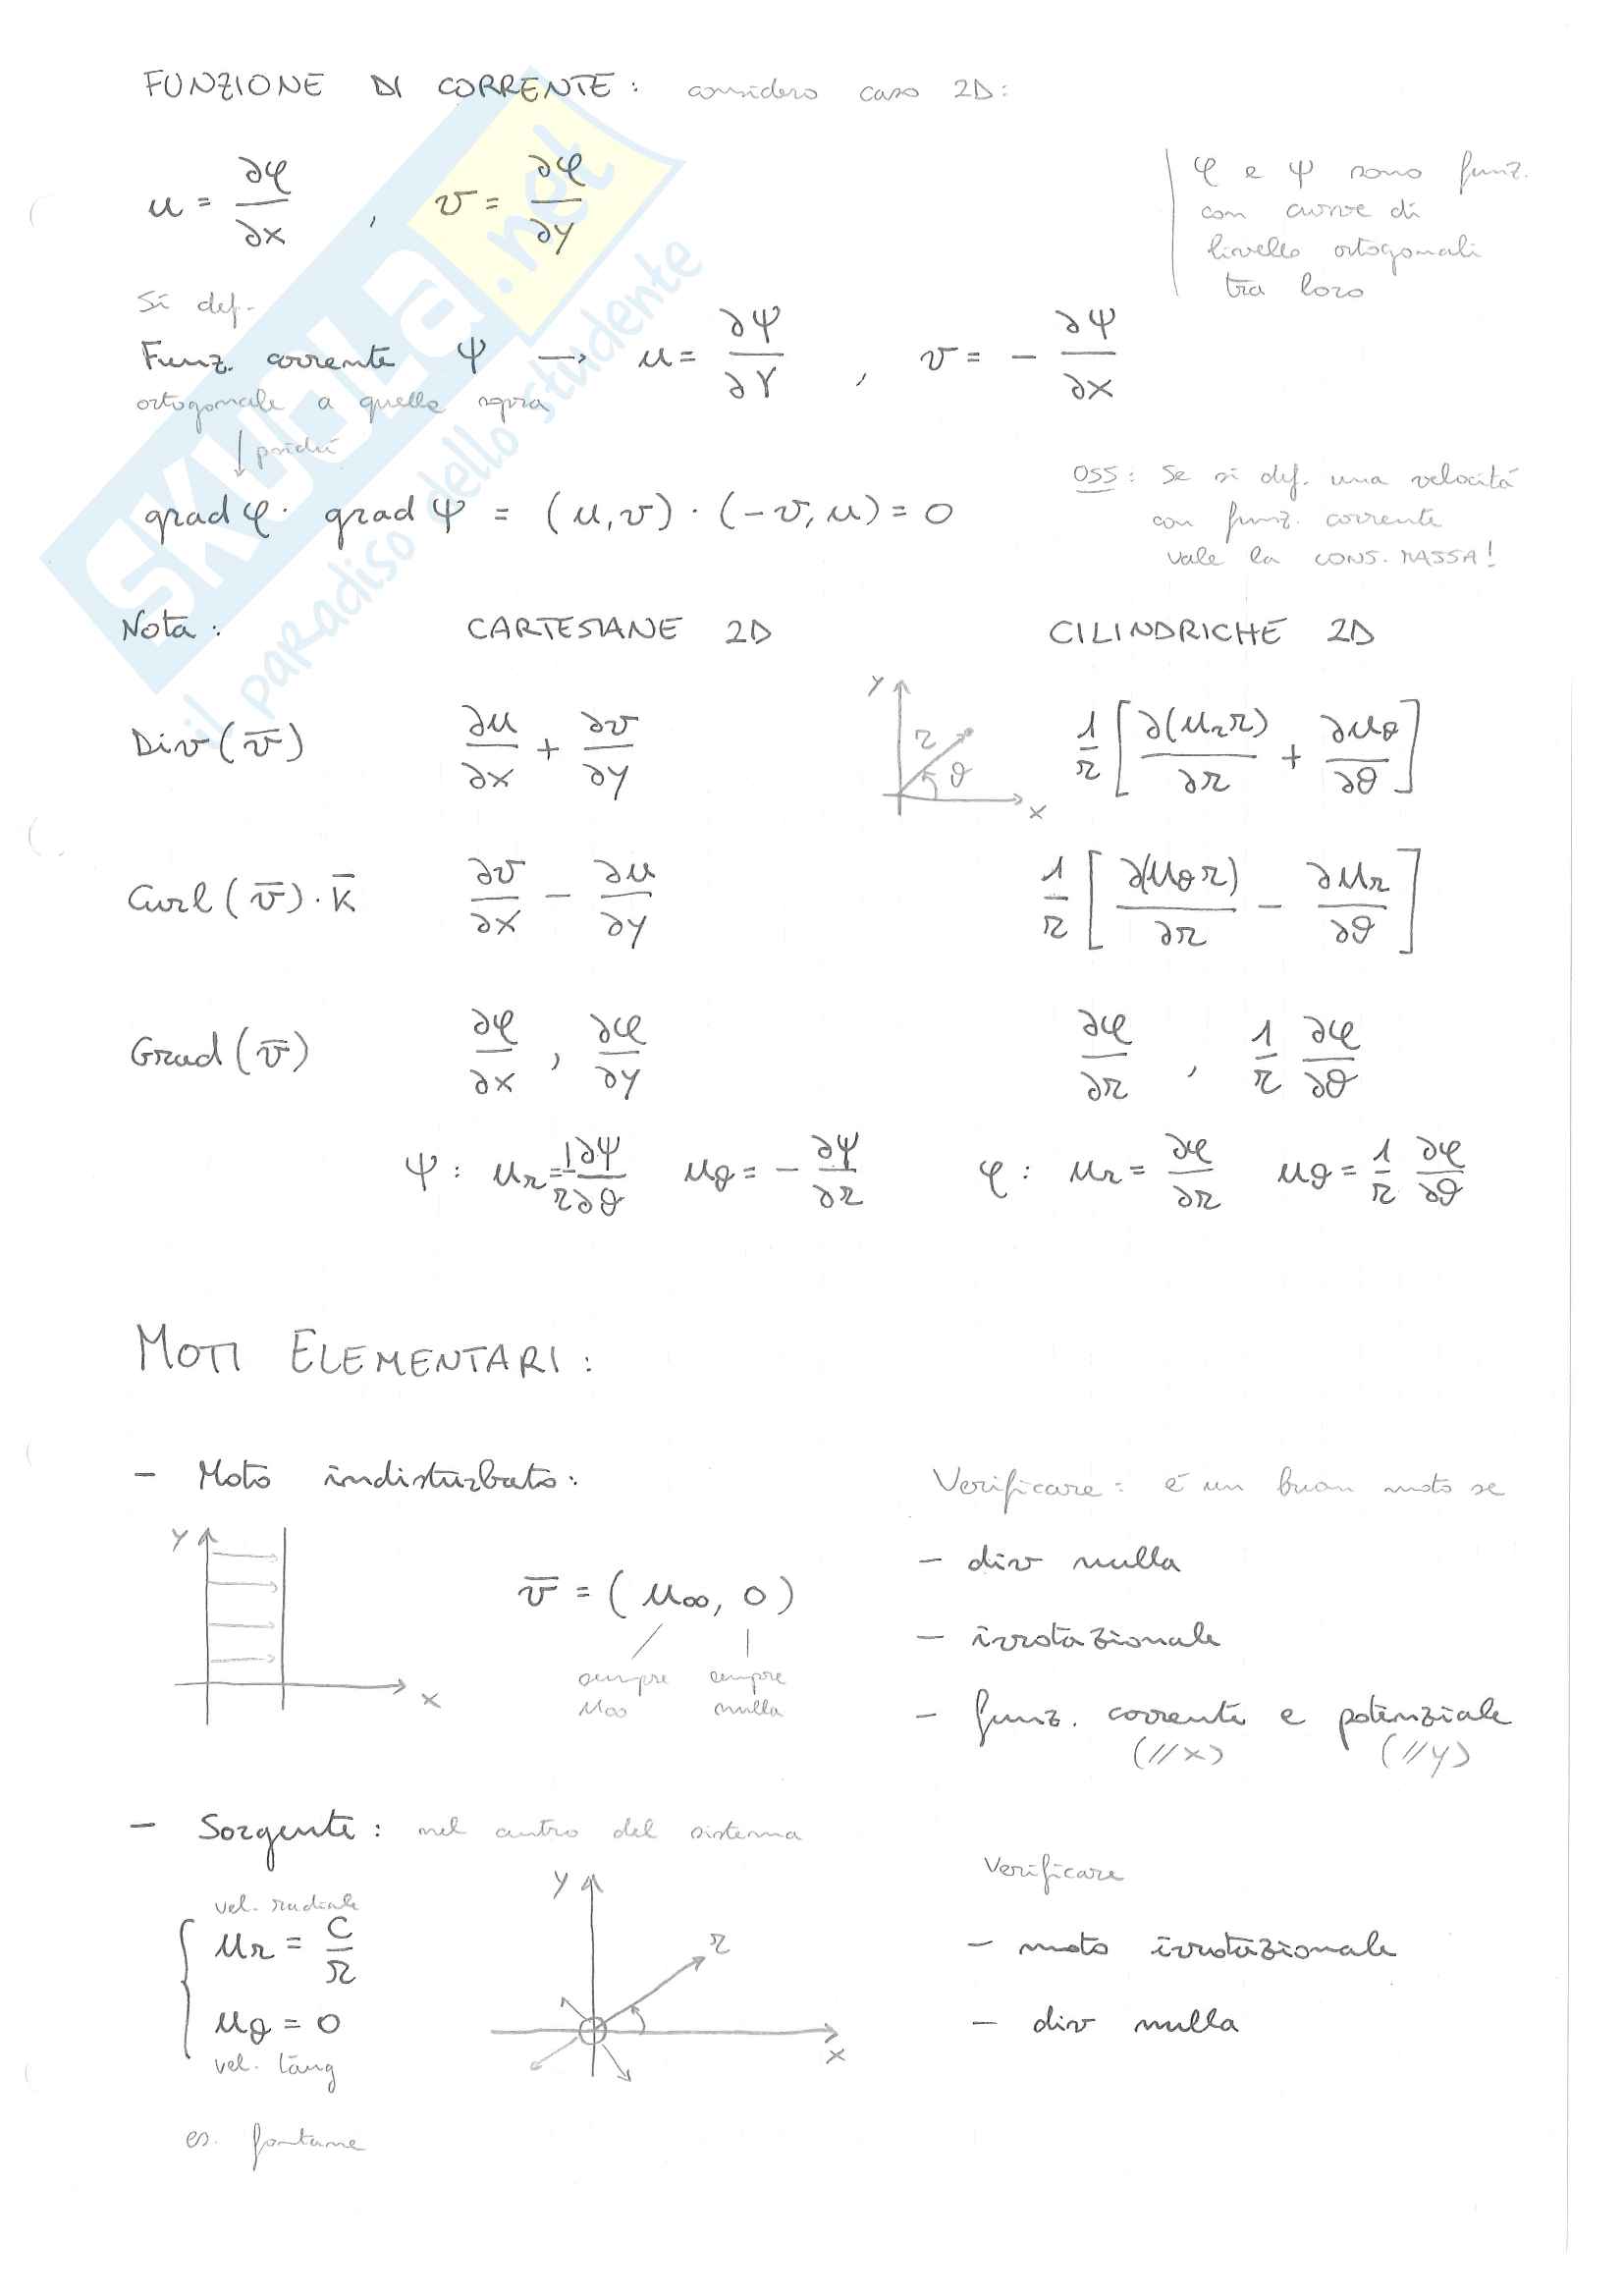 FUNZIONE DI CORRENTE: considero caso 2D:
u = ∂φ/∂x , v = ∂φ/∂y
φ e ψ sono funz.
con curve di
livello ortogonali
tra loro
Si def.
Funz. corrente ψ → u = ∂ψ/∂y , v = - ∂ψ/∂x
ortogonale a quella sopra
↓ poichè
grad φ · grad ψ = (u,v) · (-v,u) = 0
OSS: Se si def. una velocità
con funz. corrente
vale la CONS. MASSA!
Nota: CARTESIANE 2D CILINDRICHE 2D
Div(v̄) ∂u/∂x + ∂v/∂y y r θ x 1/r [∂(u_r r)/∂r + ∂u_θ/∂θ]
Curl(v̄)·k̄ ∂v/∂x - ∂u/∂y 1/r [∂(u_θ r)/∂r - ∂u_r/∂θ]
Grad(v̄) ∂φ/∂x , ∂φ/∂y ∂φ/∂r , 1/r ∂φ/∂θ
ψ: u_r = 1/r ∂ψ/∂θ u_θ = - ∂ψ/∂r φ: u_r = ∂φ/∂r u_θ = 1/r ∂φ/∂θ
MOTI ELEMENTARI:
- Moto indisturbato:
y x
v̄ = (u∞, 0)
sempre sempre
u∞ nulla
Verificare: è un buon moto se
- div nulla
- irrotazionale
- funz. corrente e potenziale
(//x) (//y)
- Sorgente: nel centro del sistema
vel. radiale
u_r = C/r
u_θ = 0
vel. tang
es. fontane
y r x
Verificare
- moto irrotazionale
- div nulla
SKUOLA.net
il paradiso dello studente